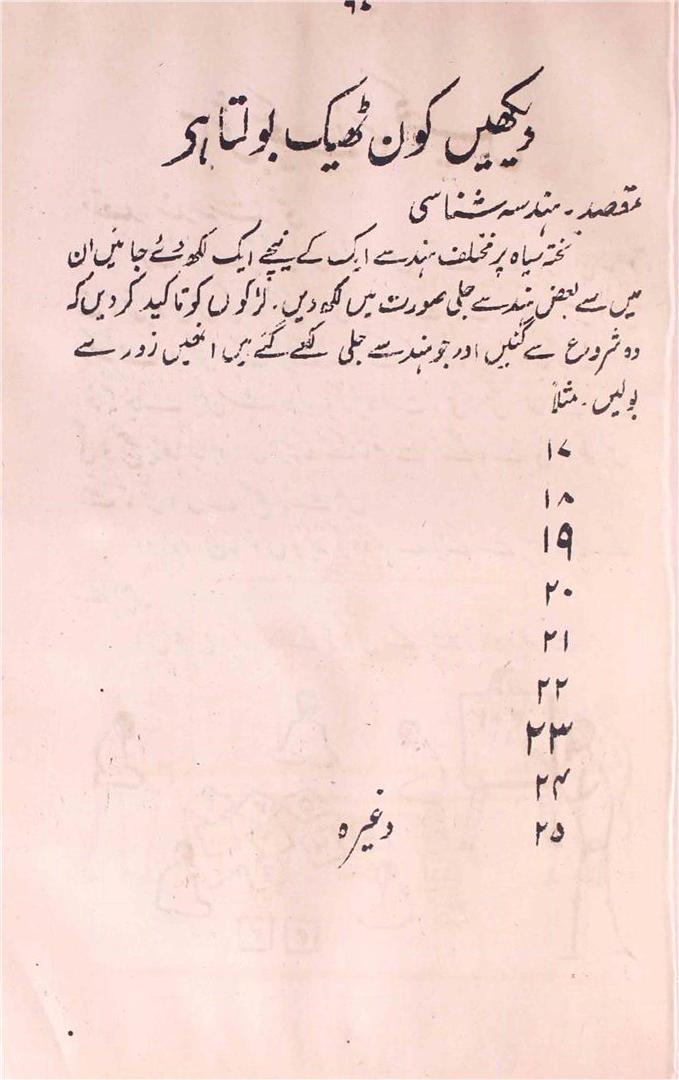 دیکھیں کون ٹھیک بولتا ہر
مقصد۔ ہندسہ شناسی
تختہ سیاہ پر مختلف ہندسے ایک کے نیچے ایک لکھ دئے جائیں ان
میں سے بعض ہندسے جلی صورت میں لکھ دیں۔ لڑکوں کو تاکید کر دیں کہ
وہ شروع سے گنیں اور جو ہندسے جلی لکھے گئے ہیں انھیں زور سے
بولیں۔ مثلاً
۱۷
۱۸
۱۹
۲۰
۲۱
۲۲
۲۳
۲۴
۲۵ وغیرہ